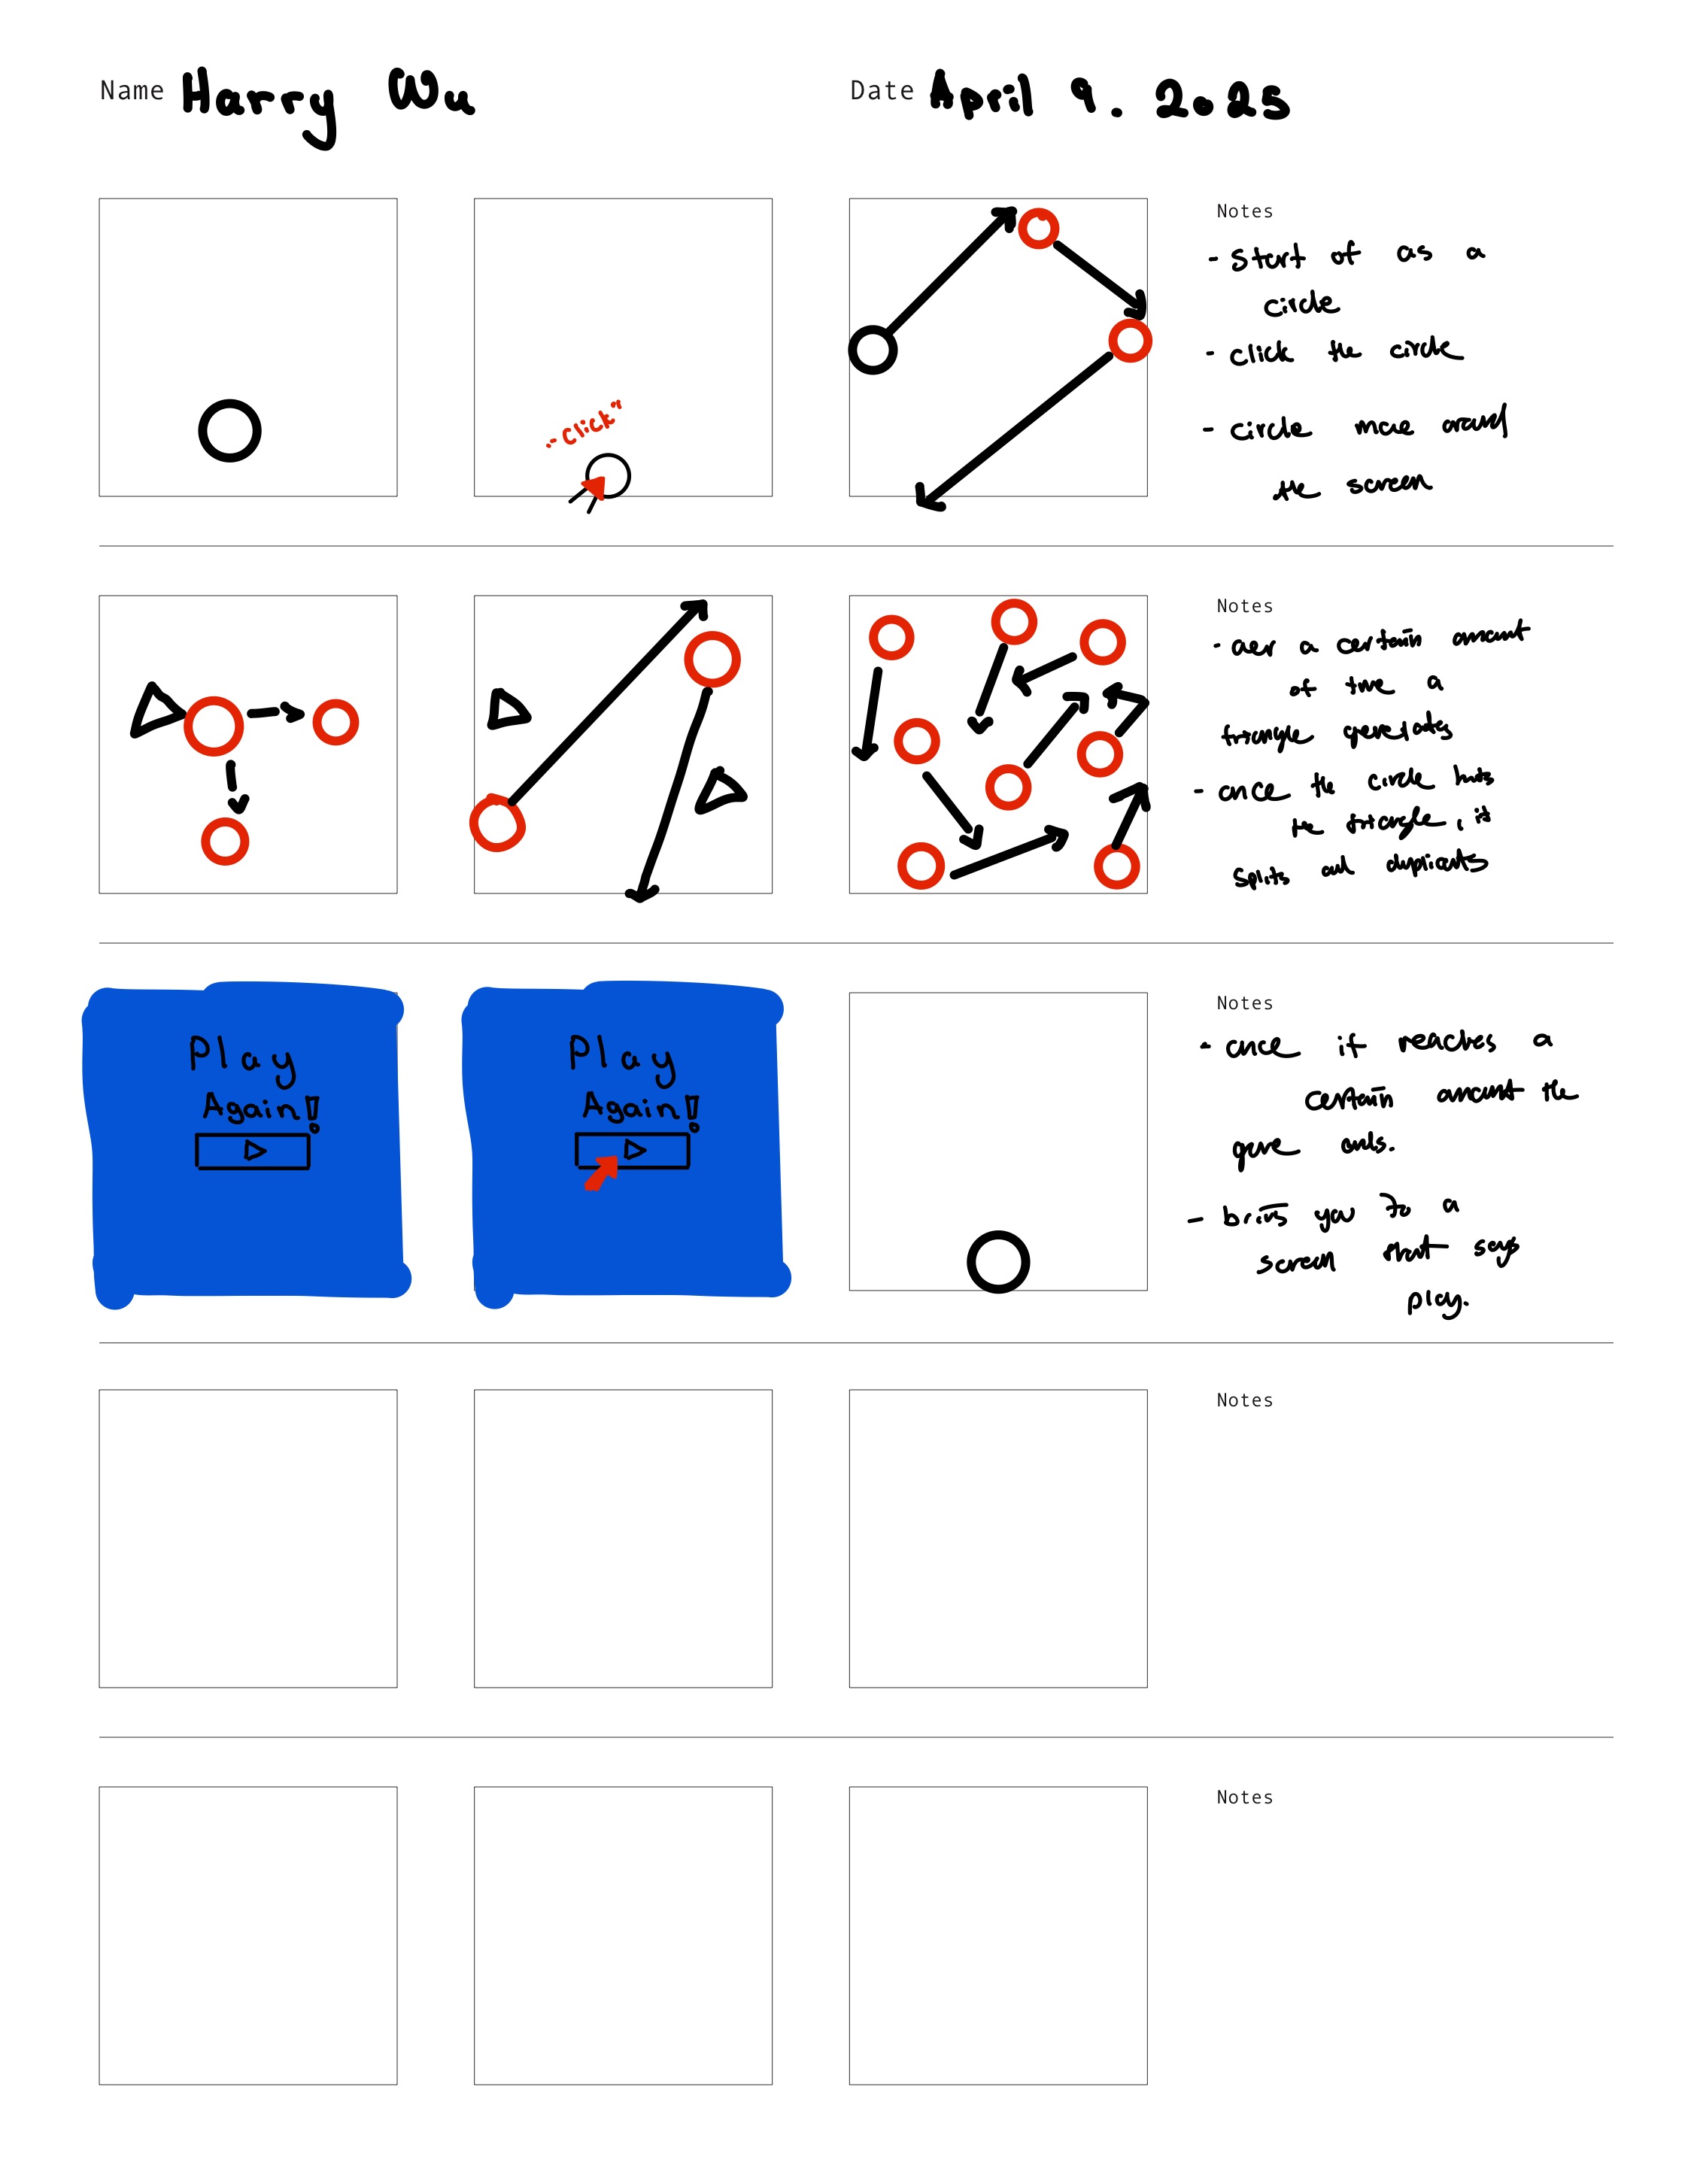 Name Harry Wu
Date April 9. 2025
Notes
- start of as a
circle
- click the circle
- circle move around
the screen
"click"
Notes
- a certain amount
of time a
triangle generates
- once the circle hits
the triangle, it
splits and duplicates
Play
Again!
Play
Again!
Notes
- once it reaches a
certain amount the
game ends.
- brings you to a
screen that says
play.
Notes
Notes